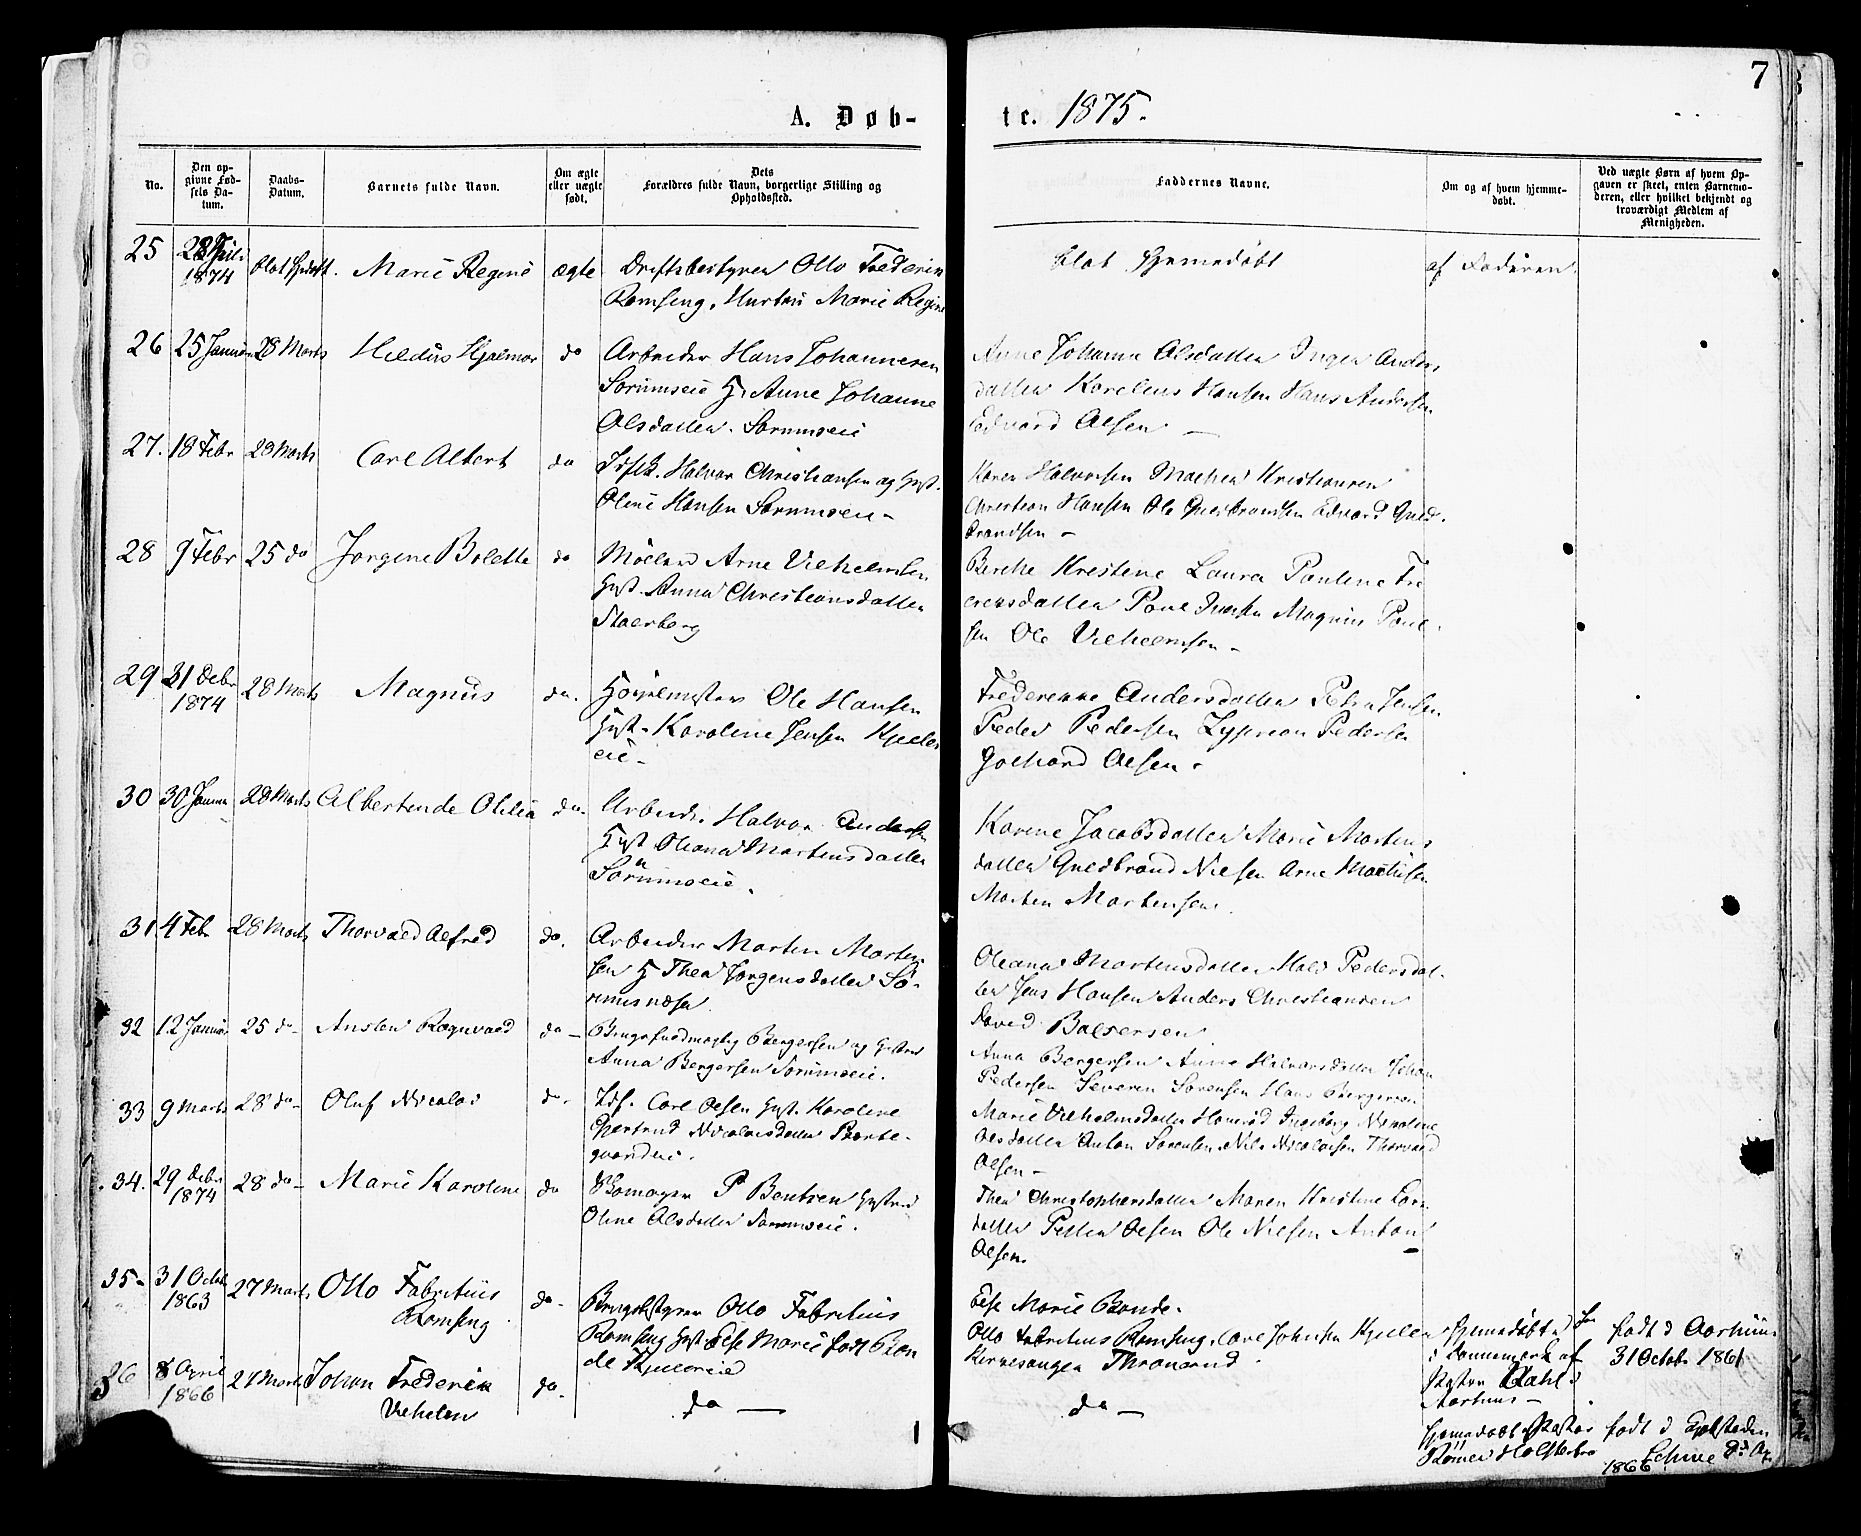 7
A. Døb-
te. 1875.
No.
Den op-
givne Fød-
sels Da-
tum.
Daabs-
Datum.
Barnets fulde Navn.
Om ægte
eller uægte
født.
Dets
Forældres fulde Navn, borgerlige Stilling og
Opholdssted.
Faddernes Navne.
Om og af hvem hjemme-
døbt.
Ved uægte Børn af hvem Op-
gaven er skeet, enten Barnemo-
deren, eller hvilket bekjendt og
troværdigt Medlem af
Menigheden.
25
1874
Marie Regine
ægte
Driftsbestyrer Otto Frederik
Romsing, Hustru Marie Regine
blot Hjemmedøbt
af Faderen.
26 25 Januar 28 Marts Hildus Hjalmar do
Arbeider Hans Johannesen
Sørumseie H. Anne Johanne
Olsdatter. Sørumseie
Anne Johanne Olsdatter Inger Anders
datter Karelius Hansen Hans Andersen
Edvard Olsen —
27. 18 Febr 28 Marts Carl Albert do
Halvor Christiansen og Hust.
Oline Hansen Sørumseie -
Karen Halvorsen Mathea Kristiansen
Christian Hansen Ole Guldbrandsen Edvard Guld
brandsen -
28 9 Febr 25 do Jørgine Bolette do
Møller Arne Vilhelmsen
Hust. Anna Christiansdatter
Berthe Kristine Laura Pauline
Magnus Poul
sen Ole Vilhelmsen -
29 21 Debr
1874
28 Marts Magnus do.
Ole Hansen
Hust. Karoline Jensen Kjeller
eie -
Frederikke Andersdatter Petra Jensen
Peder Pedersen Zyprian Pedersen
Gothard Olsen -
30 30 Januar 28 Marts Albertine Otilia do.
Arbeider Halvor Andersen
Hust Oliana Mortensdatter
Sørumseie.
Karine Jacobsdatter Marie Mortens
datter Guldbrand Nielsen Arne Mathisen
Morten Mortensen.
31. 4 Febr 28 Marts Thorvald Alfred do.
Arbeider Morten Morten
sen H Thea Jørgensdatter Sø-
rumsnesset
Oliana Mortensdatter Pedersdat-
ter Jens Hansen Anders Christiansen
Balsersen
32 12 Januar 25 do - Anslev Rognvald do -
Brugsfuldmægtig Bergersen og Hustru
Anna Bergersen Sørumseie.
Anna Bergersen Anne Halvorsdatter Johan
Pedersen Severin Sørensen Hans Bergersen
33 9 Marts 28 do - Oluf Nicolai do.
Carl Olsen Hust. Karoline
Gjertrud Nicolaisdatter
Marie Vilhelmsdatter Ingeborg Nicoline
Olsdatter Anton Sørensen Nils Nicolaisen Thorvald
Olsen -
34. 29 Debr
1874
28 do - Marie Karoline do
Skomager P Bentsen Hustru
Oline Olsdatter Sørumseie.
Thea Christophersdatter Maren Kristine Lars
datter Petter Olsen Ole Nielsen Anton
Olsen.
35 - 31 Octob
1863
27 Marts Otto Fabritius
Romsing
do -
Brugsbestyrer Otto Fabritius
Romsing Hust Else Marie født Bon
de Kjellereie
Else Marie Bonde.
Otto Fabritius Romsing, Carl Johnsen Kjeller
Kirkesanger Thranerud.
Hjemmedøbt
i Dannemark af
Pastor Dahl i
Aarhuus -
født i Aarhuus
31 Octobr 1861
36 8 April
1866
27 Marts Johan Frederik
Vilhelm
do.
do —
do —
Hjemmedøbt Pastor
Rømer Holstebro
født
1866